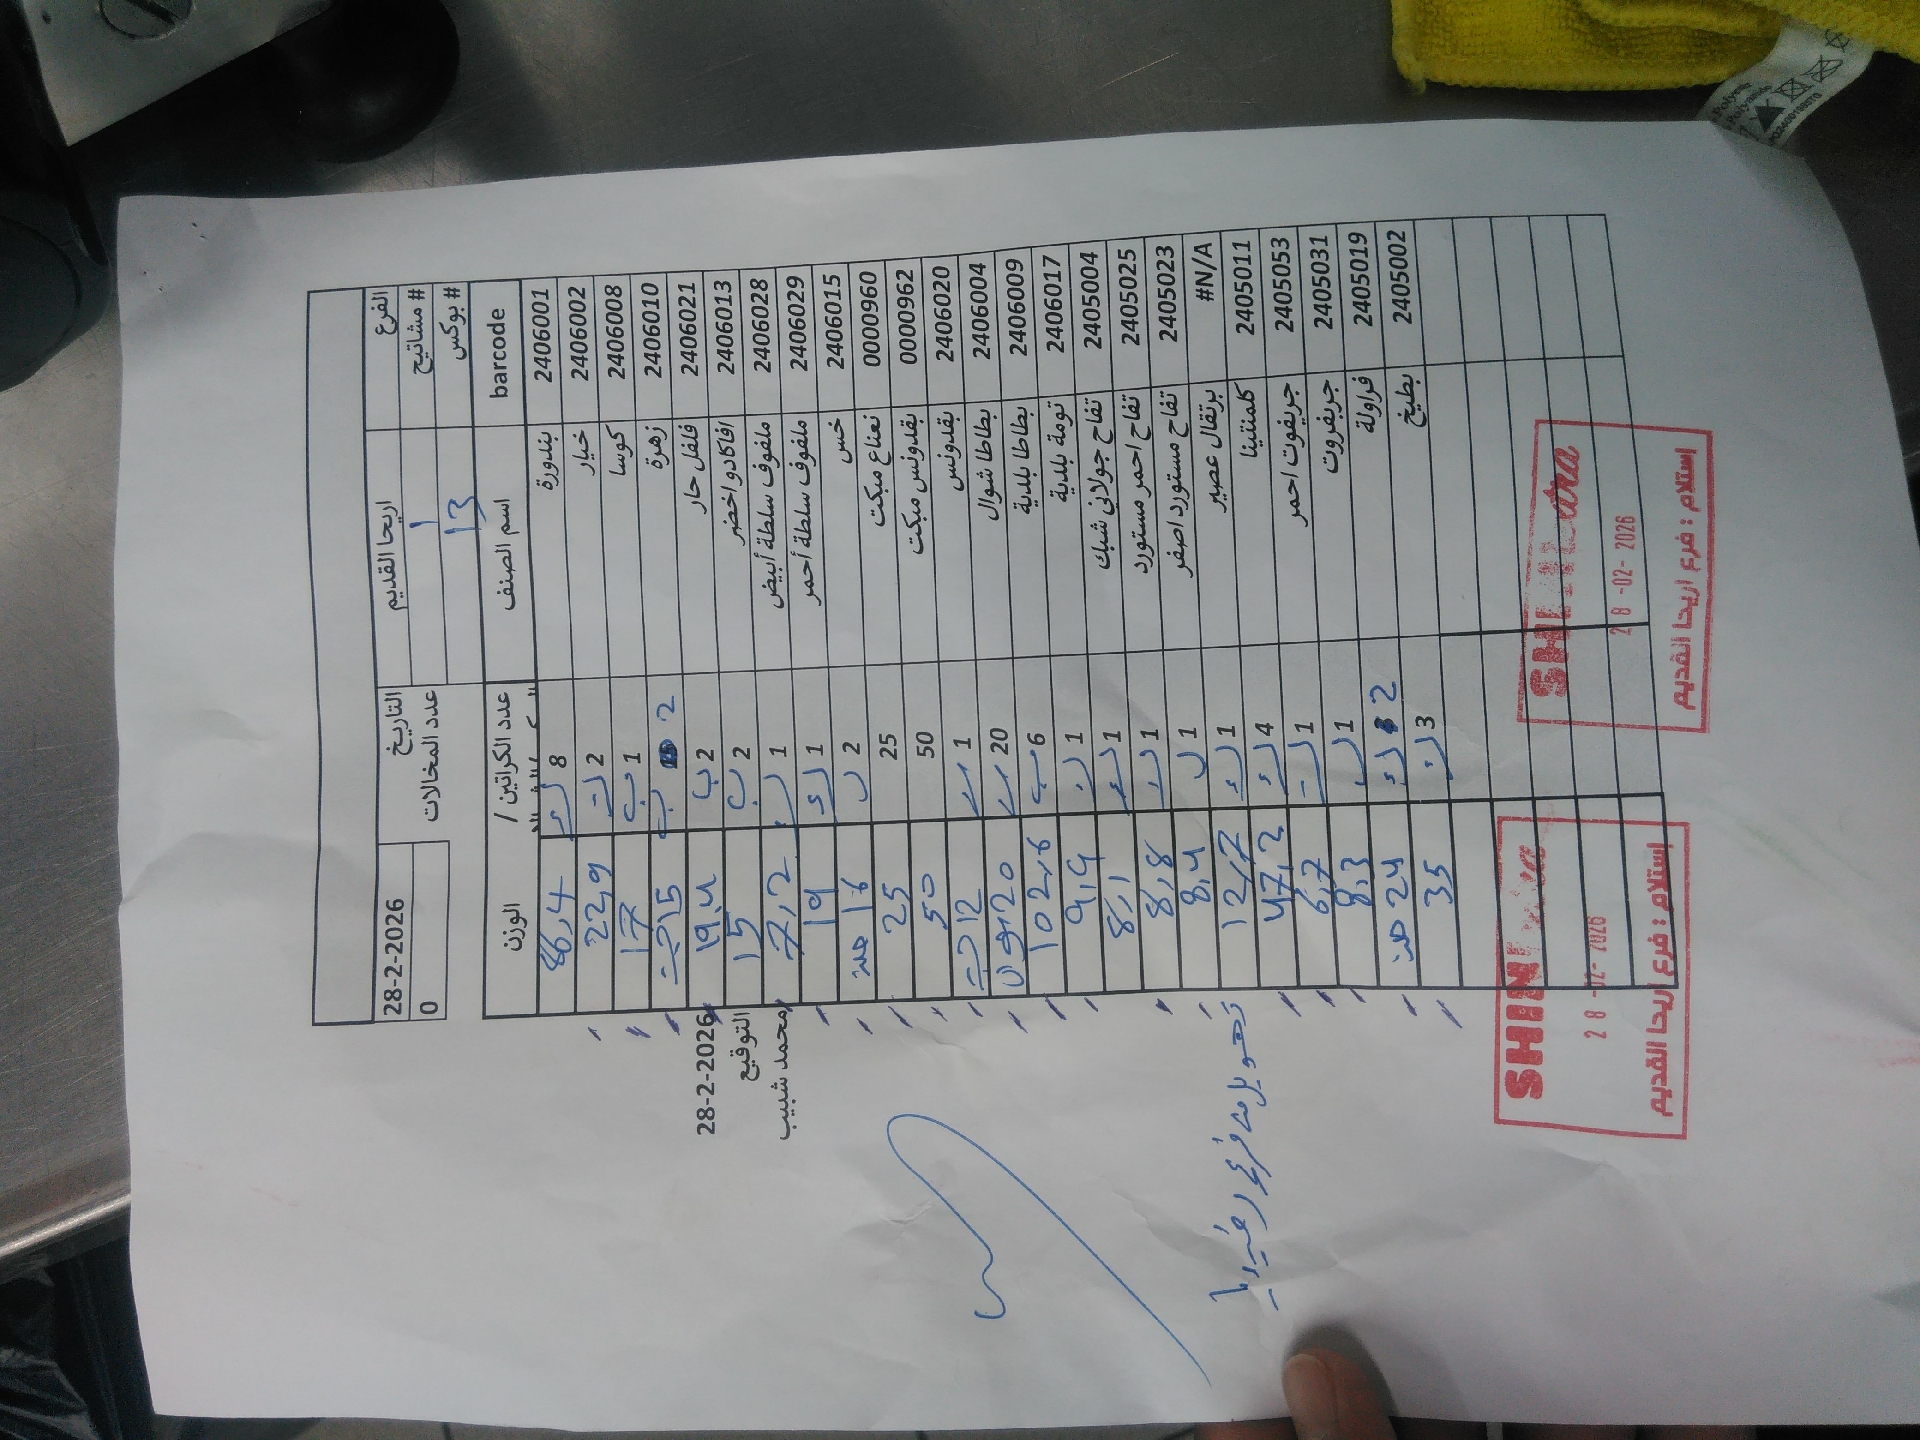 الفرع اريحا القديم التاريخ 28-2-2026
# مشاتيح 1 عدد المخالات 0
# بوكس 13
barcode اسم الصنف عدد الكراتين / الوزن
2406001 بندورة 8 86,4
2406002 خيار 2 22,9
2406008 كوسا ب 1 17
2406010 زهرة ب 2 15 حبة
2406021 فلفل حار ب 2 19,4
2406013 افاكادو اخضر ب 2 15
2406028 ملفوف سلطة أبيض 1 7,2
2406029 ملفوف سلطة أحمر 1 19
2406015 خس 2 16
0000960 نعناع مبكت 25 25
0000962 بقدونس مبكت 50 50
2406020 بقدونس 1 12
2406004 بطاطا شوال 20 20
2406009 بطاطا بلدية 6 102,6
2406017 تومة بلدية 1 9,9
2405004 تفاح جولاني شبك 1 8,1
2405025 تفاح احمر مستورد 1 8,8
2405023 تفاح مستورد اصفر 1 8,4
#N/A برتقال عصير 1 12,7
2405011 كلمنتينا 4 47,2
2405053 جريفوت احمر 1 6,7
2405031 جريفروت 1 8,3
2405019 فراولة 2 24
2405002 بطيخ 3 35
28-2-2026
التوقيع
محمد شبيب
SHINI extra
28 -02- 2026
إستلام : فرع اريحا القديم
SHINI extra
28 -02- 2026
إستلام : فرع اريحا القديم